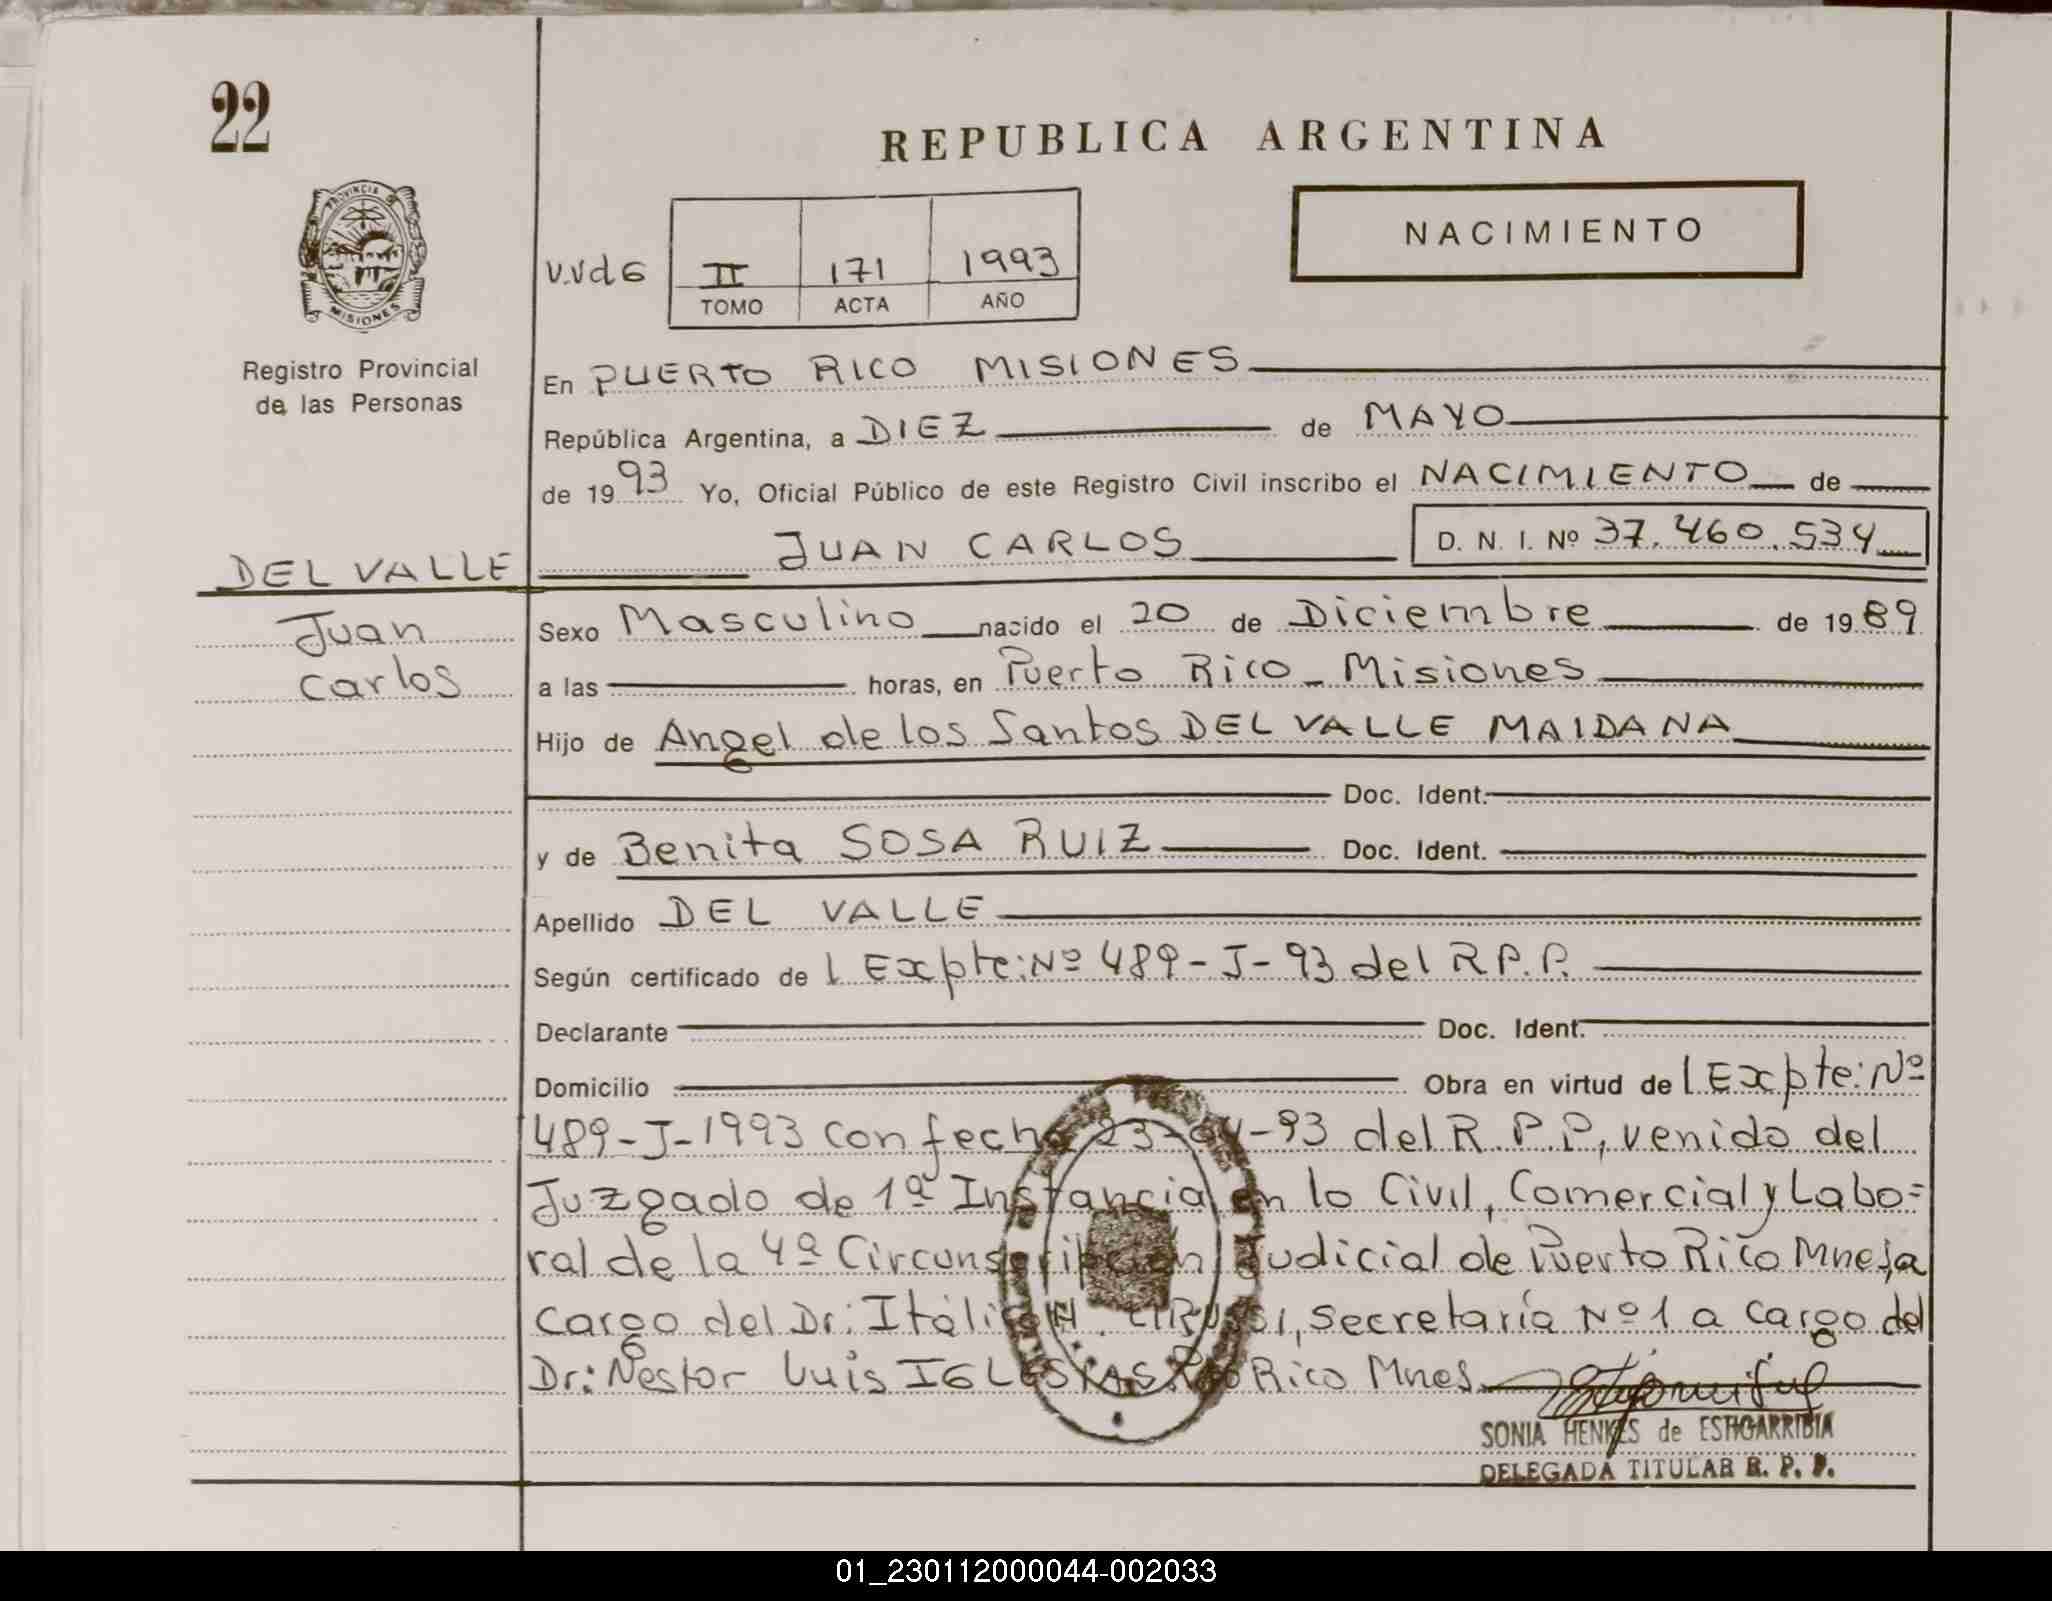 22
REPUBLICA ARGENTINA
PROVINCIA DE
MISIONES
NACIMIENTO
V.Vd6
II 171 1993
TOMO ACTA AÑO
Registro Provincial
de las Personas
En PUERTO RICO MISIONES
República Argentina, a DIEZ de MAYO
de 1993 Yo, Oficial Público de este Registro Civil inscribo el NACIMIENTO de
JUAN CARLOS D. N. I. Nº 37.460.534
DEL VALLE
Juan
Carlos
Sexo Masculino nacido el 20 de Diciembre de 1989
a las horas, en Puerto Rico - Misiones
Hijo de Angel de los Santos DEL VALLE MAIDANA
Doc. Ident.
y de Benita SOSA RUIZ Doc. Ident.
Apellido DEL VALLE
Según certificado de l Expte: Nº 489-J-93 del R.P.P.
Declarante Doc. Ident.
Domicilio Obra en virtud de l Expte: Nº
489-J-1993 con fecha 23-04-93 del R.P.P, venido del
Juzgado de 1ª Instancia en lo Civil, Comercial y Labo=
ral de la 4ª Circunscripción Judicial de Puerto Rico Mnes, a
cargo del Dr: Itálico, Secretaría Nº 1 a cargo del
Dr: Nestor Luis IGLESIAS Pto Rico Mnes.
SONIA HENKES de ESTIGARRIBIA
DELEGADA TITULAR R. P. P.
01_230112000044-002033